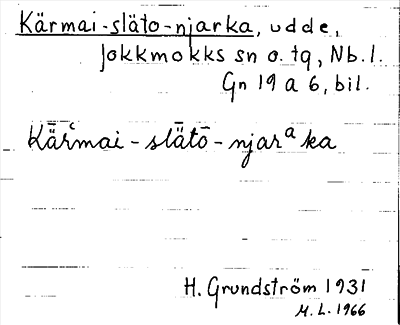 Kärmai-släto-njarka, udde,
Jokkmokks sn o. tg, Nb. l.
Gn 19 a 6, bil.
Kǟrͨmai - slǟtō - njarᵃka
H. Grundström 1931
M. L. 1966